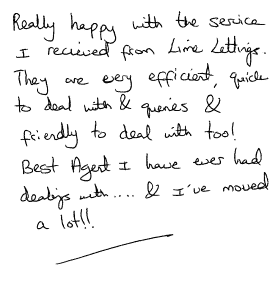 Really happy with the service
I recieved from Lime Lettings.
They are very efficient, quick
to deal with & queries &
friendly to deal with too!
Best Agent I have ever had
dealings with.... & I've moved
a lot!!